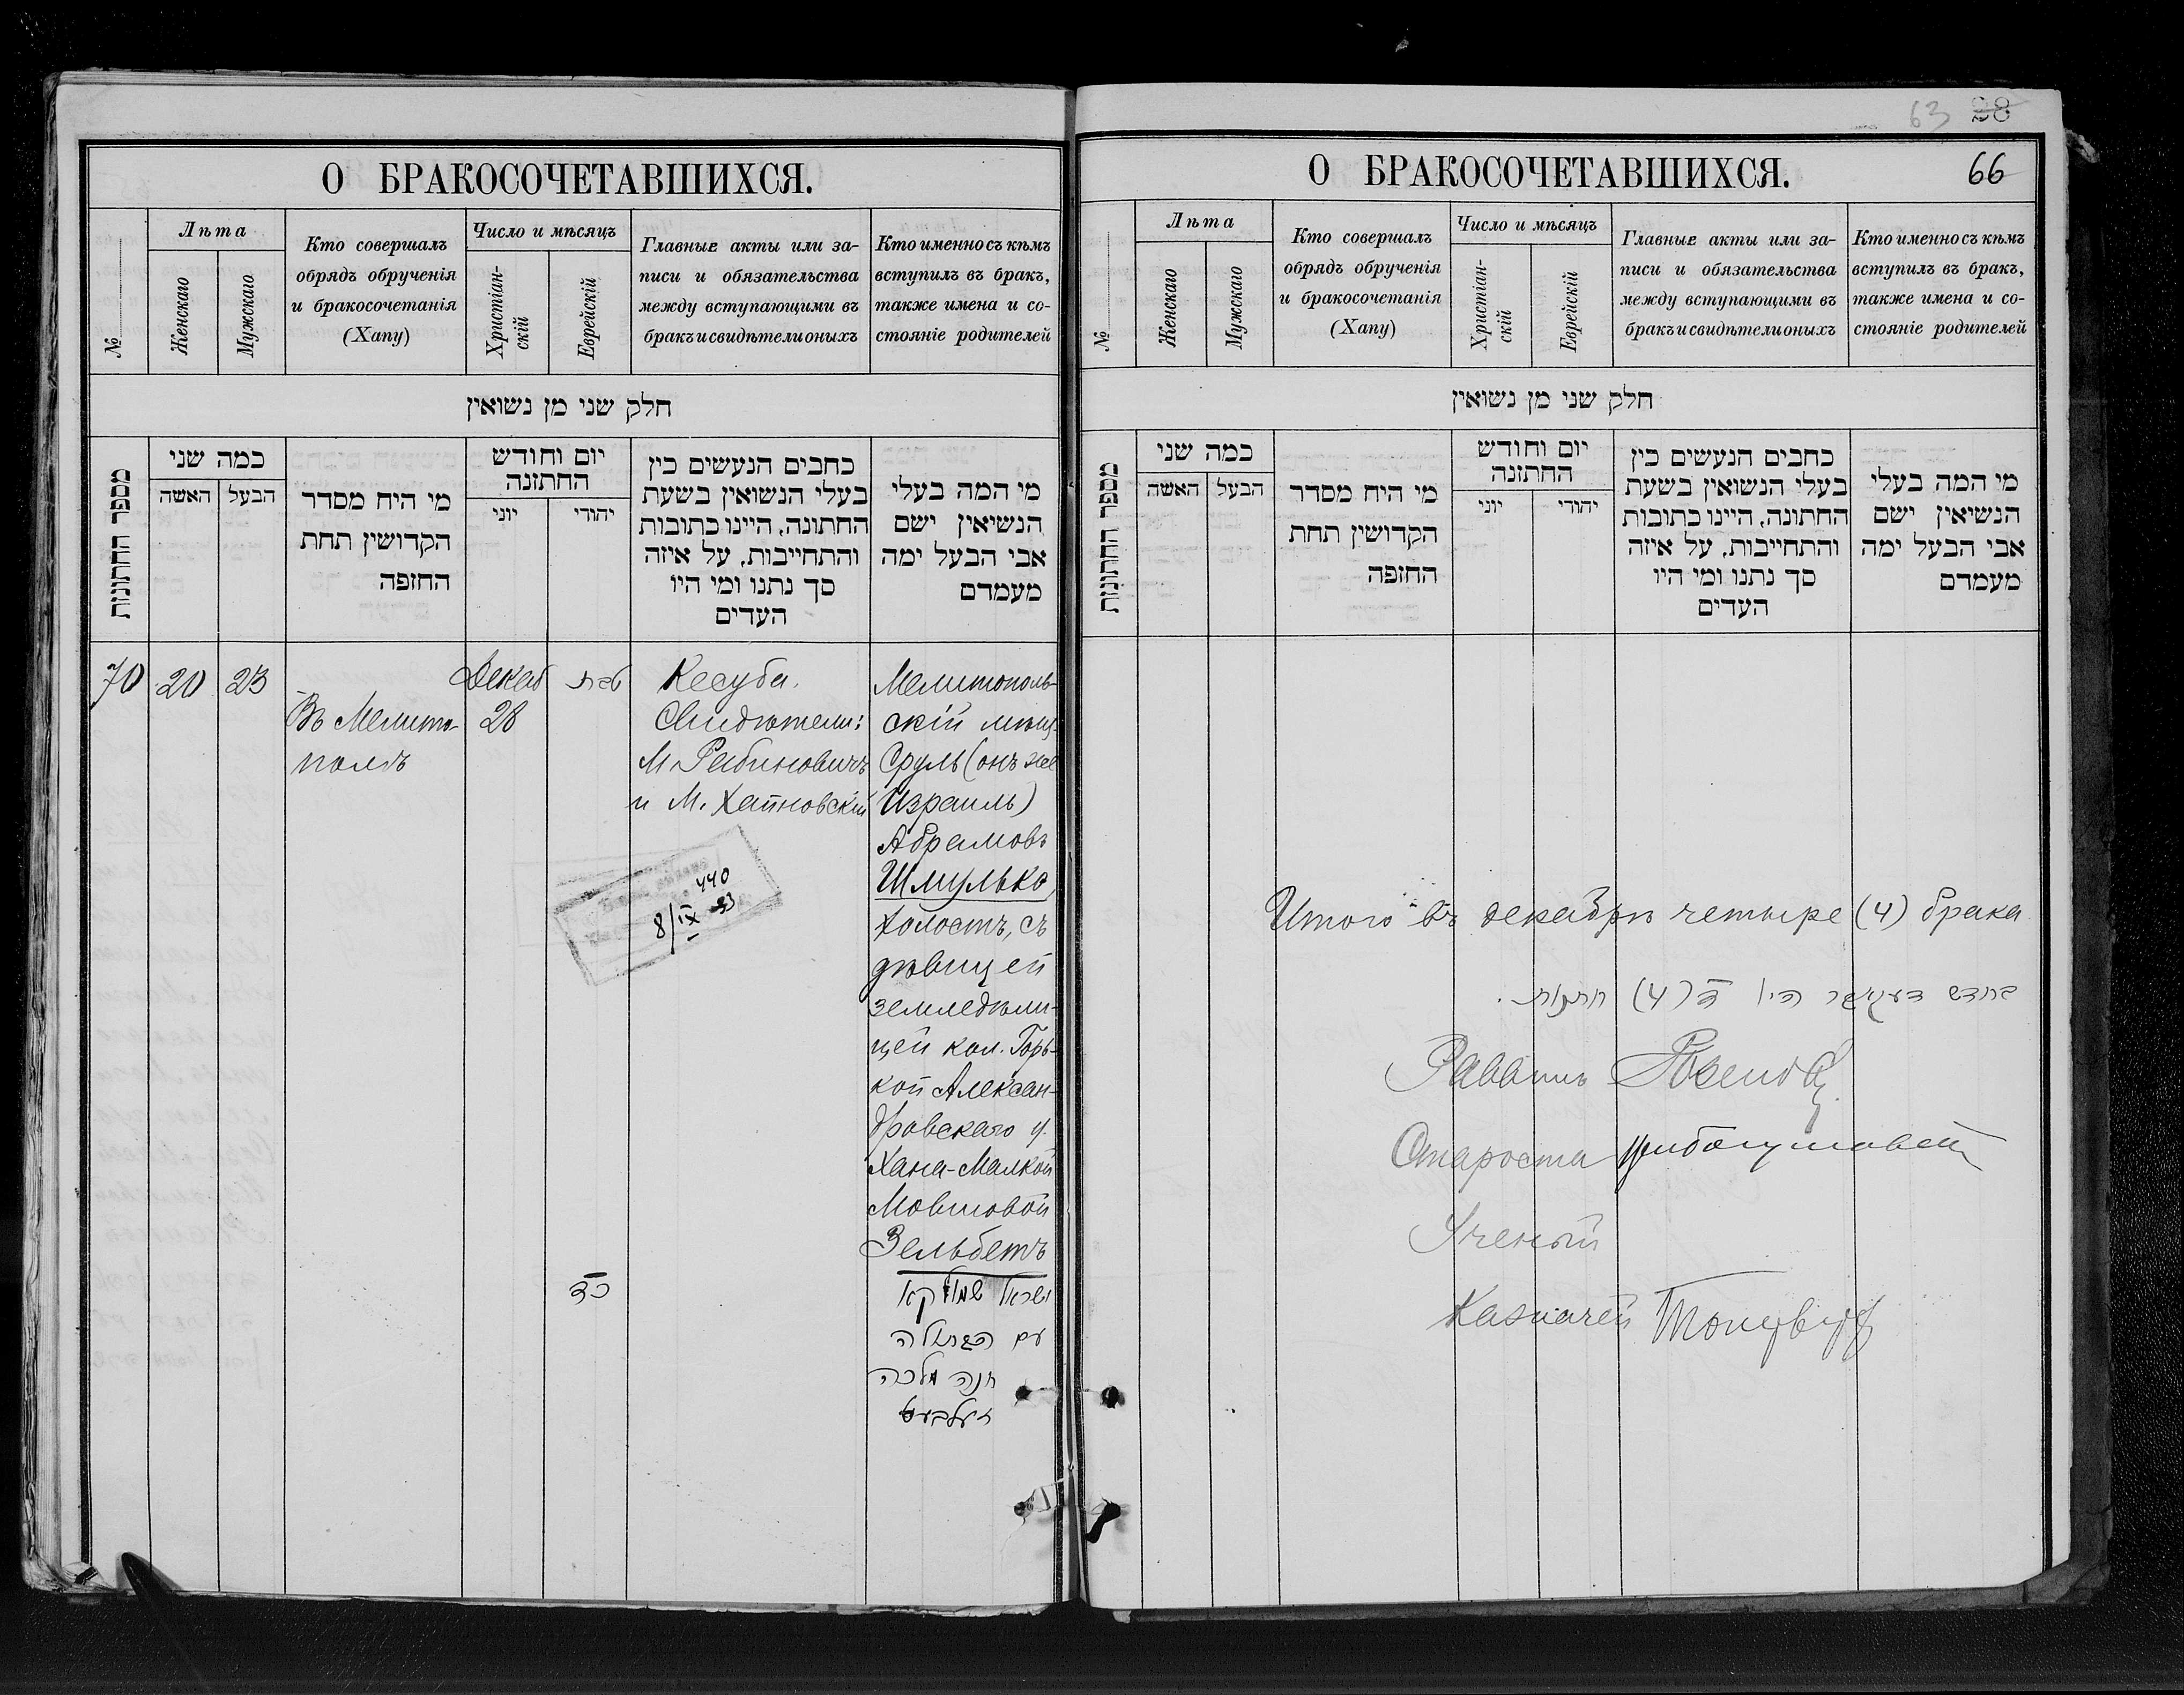 О БРАКОСОЧЕТАВШИХСЯ.
№
Лѣта
Женскаго
Мужскаго
Кто совершалъ
обрядъ обрученія
и бракосочетанія
(Хапу)
Число и мѣсяцъ
Христіан-
скій
Еврейскій
Главные акты или за-
писи и обязательства
между вступающими въ
бракъ и свидѣтели оныхъ
Кто именно съ кѣмъ
вступилъ въ бракъ,
также имена и со-
стояніе родителей
חלק שני מן נשואין
מספר החתונות
כמה שני
האשה
הבעל
מי היח מסדר
הקדושין תחת
החופה
יום וחודש
החתונה
יוני
יהודי
כחבים הנעשים כין
בעלי הנשואין בשעת
החתונה, היינו כתובות
והתחייבות, על איזה
סך נתנו ומי היו
העדים
מי המה בעלי
הנשיאין ישם
אבי הבעל ימה
מעמדם
70
20
23
Въ Мелито-
полѣ
Декаб
28
טבת
כד
Кесуба.
Свидѣтели:
М. Рабиновичъ
и М. Хайновскій
440
8/IX 33
Мелитополь-
скій мѣщ.
Сруль (онъ же
Израиль)
Абрамовъ
Шмулько,
холостъ, съ
дѣвицей
земледѣли-
цей кол. Горь-
кой Алексан-
дровскаго у.
Хана-Малкой
Мовшовой
Зельбетъ
ישראל שמולקא
עם הבתולה
חנה מלכה
זעלבעט
63 98
О БРАКОСОЧЕТАВШИХСЯ.
66
№
Лѣта
Женскаго
Мужскаго
Кто совершалъ
обрядъ обрученія
и бракосочетанія
(Хапу)
Число и мѣсяцъ
Христіан-
скій
Еврейскій
Главные акты или за-
писи и обязательства
между вступающими въ
бракъ и свидѣтели оныхъ
Кто именно съ кѣмъ
вступилъ въ бракъ,
также имена и со-
стояніе родителей
חלק שני מן נשואין
מספר החתונות
כמה שני
האשה
הבעל
מי היח מסדר
הקדושין תחת
החופה
יום וחודש
החתונה
יוני
יהודי
כחבים הנעשים כין
בעלי הנשואין בשעת
החתונה, היינו כתובות
והתחייבות, על איזה
סך נתנו ומי היו
העדים
מי המה בעלי
הנשיאין ישם
אבי הבעל ימה
מעמדם
Итого въ декабрѣ четыре (4) брака
בחדש דעקאבר היו ד (4) חתונות.
Раввинъ
Староста
Ученый
Казначей